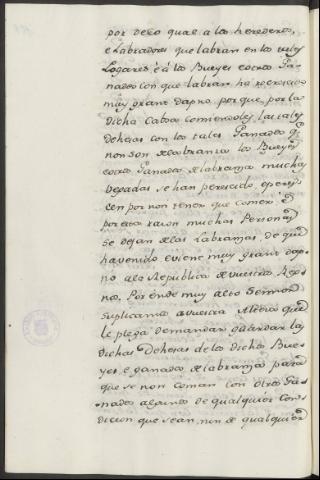 por delo qual a los herederos,
e Labradores que labran en los tales
Logares, e a los Bueyes e otros Ga-
nados con que labran ha recrescido
muy grant dapno, porque, por la
dicha Cabsa comiendoles las tales
dehesas con los tales Ganados q.
non son de labranza los Bueyes
e otros Ganados de labranza muchas
vegadas se han perescido, e peres-
cen por non tener que comer: E
por esta razon muchas Personas
se dejan de las Labranzas, de que
ha venido e viene muy grant dap-
no a la Republica de vuestros Reg-
nos. Por ende muy alto Sennor
Suplicamos a vuestra Alteza que
le plega de mandar guardar las
dichas Dehesas de los dichos Bue-
yes e ganados de labranza para
que se non coman con otros Ga-
nados algunos de qualquier con-
dicion que sean, nin de qualquier